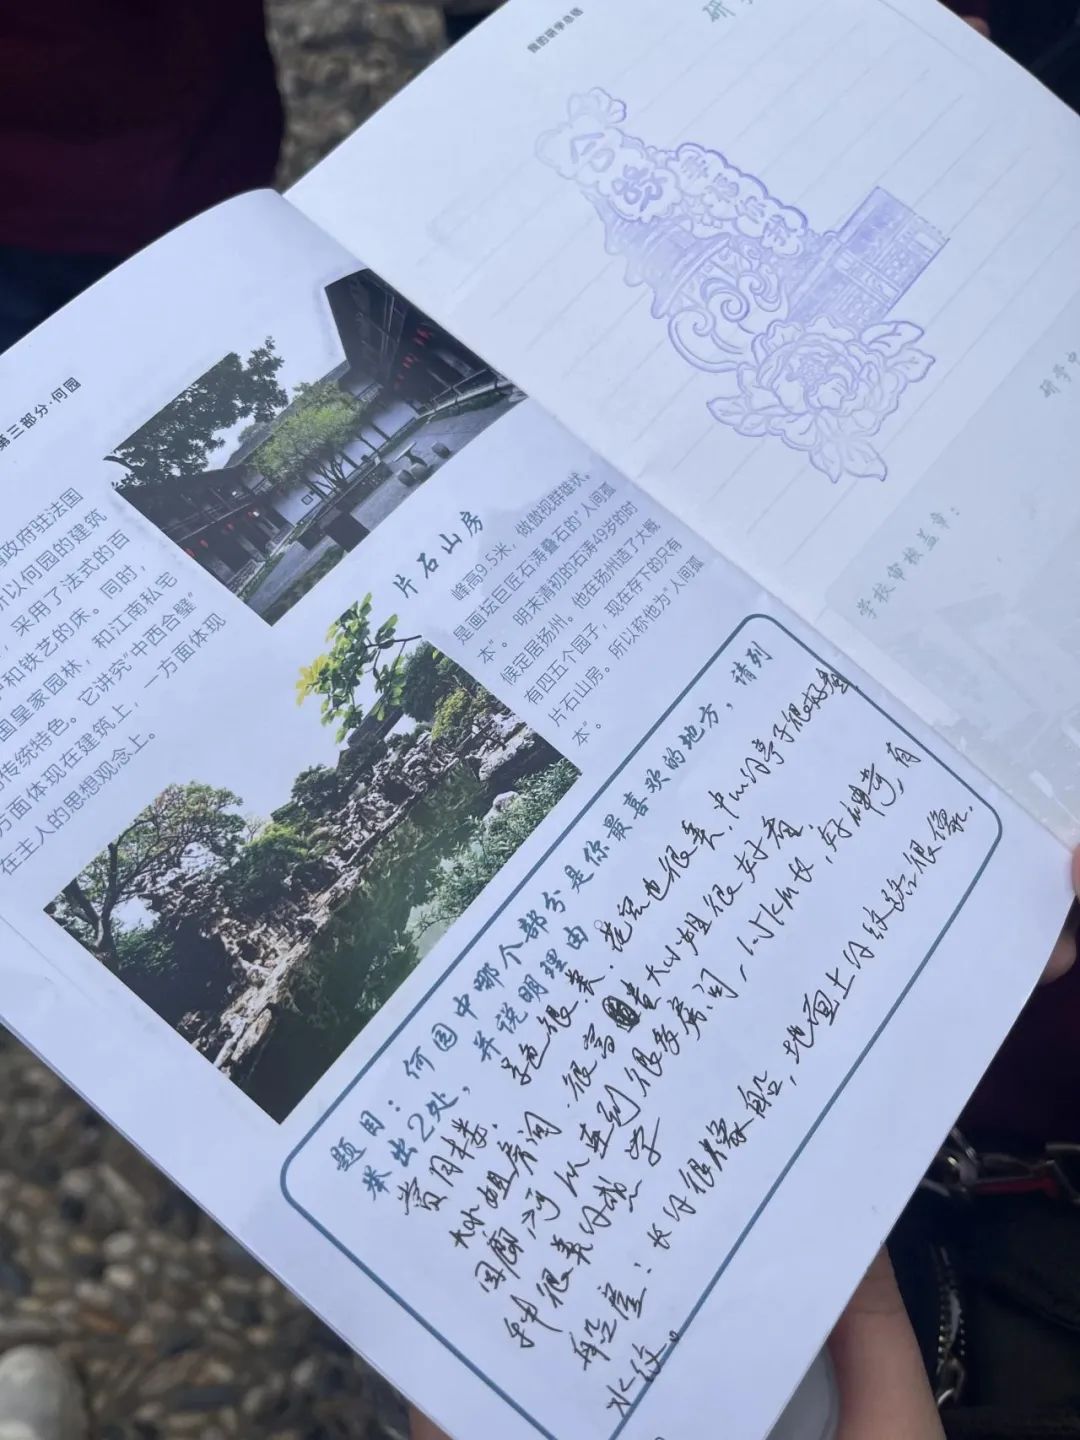 第三部分·何园
政府驻法国
所以何园的建筑
，采用了法式的百
和铁艺的床。同时，
国皇家园林，和江南私宅
传统特色。它讲究"中西合璧"
方面体现在建筑上，一方面体现
在主人的思想观念上。
片石山房
峰高9.5米，傲傲视群雄状。
是画坛巨匠石涛叠石的"人间孤
本"。明末清初的石涛49岁的时
候定居扬州。他在扬州造了大概
有四五个园子，现在存下的只有
片石山房。所以称他为"人间孤
本"。
题目：何园中哪个部分是你最喜欢的地方，请列
举出2处，并说明理由
赏月楼，景色很美，花园也很美，中心的亭子很好看
大小姐房间，很高贵大小姐很好看，
回廊，可以连到很多房间，1.5km长，好神奇，有
种很美的感觉
船厅：长的很像船，地面上的纹路很像
水纹。
我的研学总结
个园
学校审核盖章：